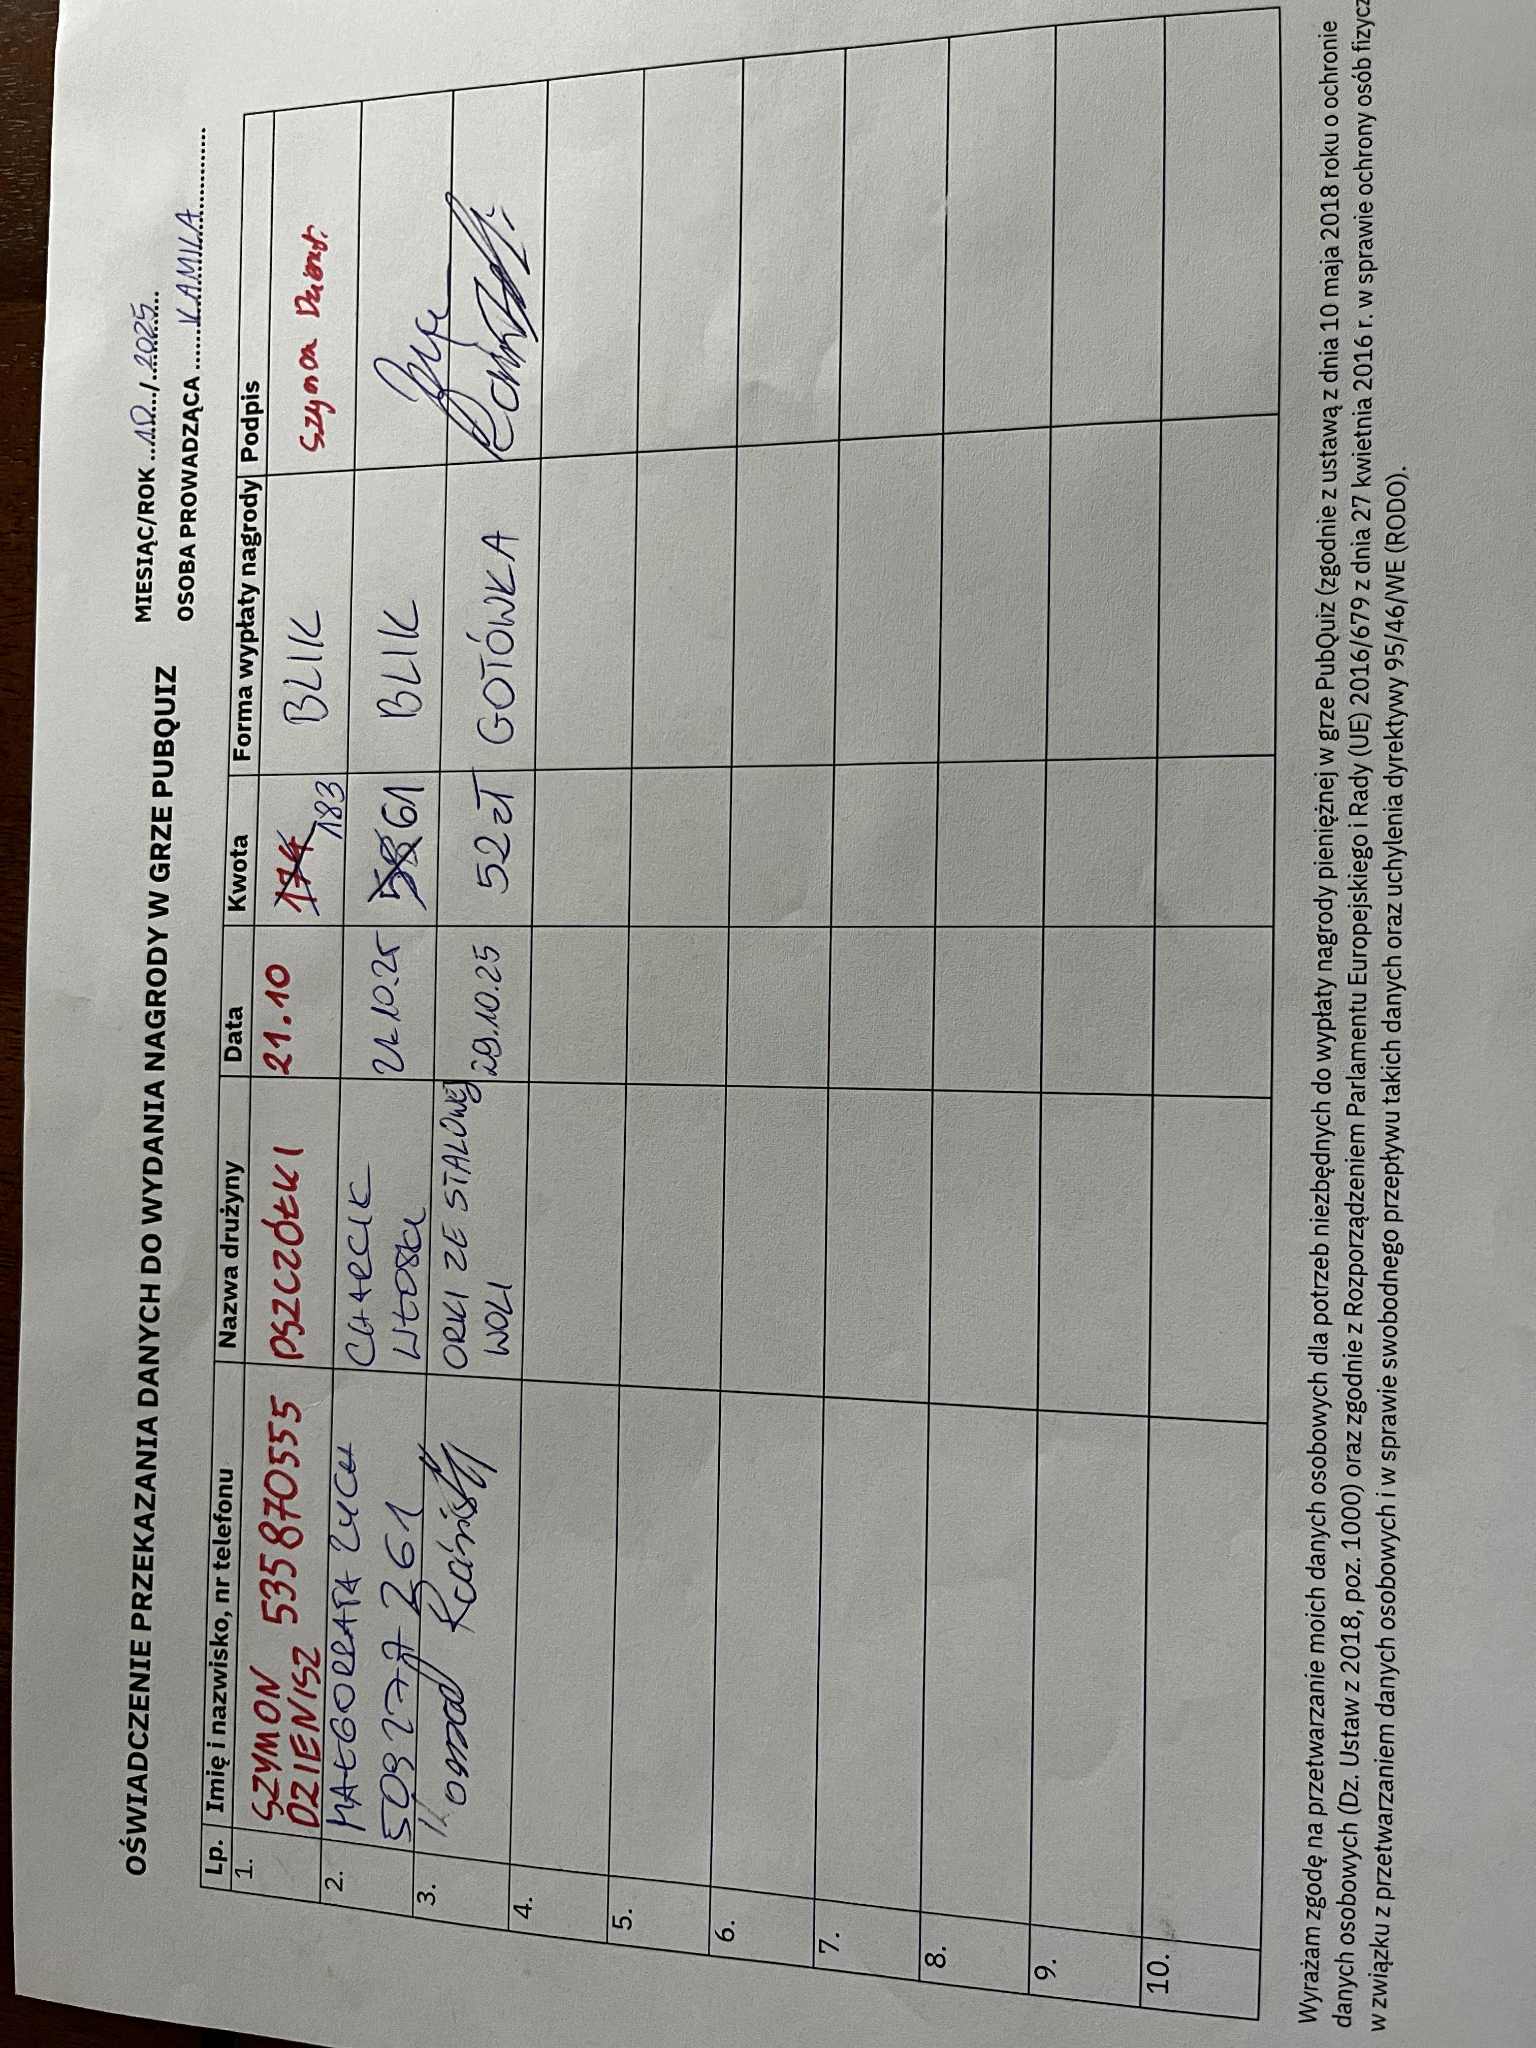 OŚWIADCZENIE PRZEKAZANIA DANYCH DO WYDANIA NAGRODY W GRZE PUBQUIZ
MIESIĄC/ROK ...10.../...2025...
OSOBA PROWADZĄCA ......KAMILA............
Lp. Imię i nazwisko, nr telefonu Nazwa drużyny Data Kwota Forma wypłaty nagrody Podpis
1. SZYMON DZIENISZ 535870555 PSZCZÓŁKI 21.10 174 183 BLIK Szymon
2. MAŁGORZATA ZYCH
509277261 CHARCIK
WŁOSKI 21.10.25 58 61 BLIK
3. Konrad ORKI ZE STALOWEJ
WOLI 29.10.25 52 zł GOTÓWKA
4.
5.
6.
7.
8.
9.
10.
Wyrażam zgodę na przetwarzanie moich danych osobowych dla potrzeb niezbędnych do wypłaty nagrody pieniężnej w grze PubQuiz (zgodnie z ustawą z dnia 10 maja 2018 roku o ochronie
danych osobowych (Dz. Ustaw z 2018, poz. 1000) oraz zgodnie z Rozporządzeniem Parlamentu Europejskiego i Rady (UE) 2016/679 z dnia 27 kwietnia 2016 r. w sprawie ochrony osób fizycz
w związku z przetwarzaniem danych osobowych i w sprawie swobodnego przepływu takich danych oraz uchylenia dyrektywy 95/46/WE (RODO).